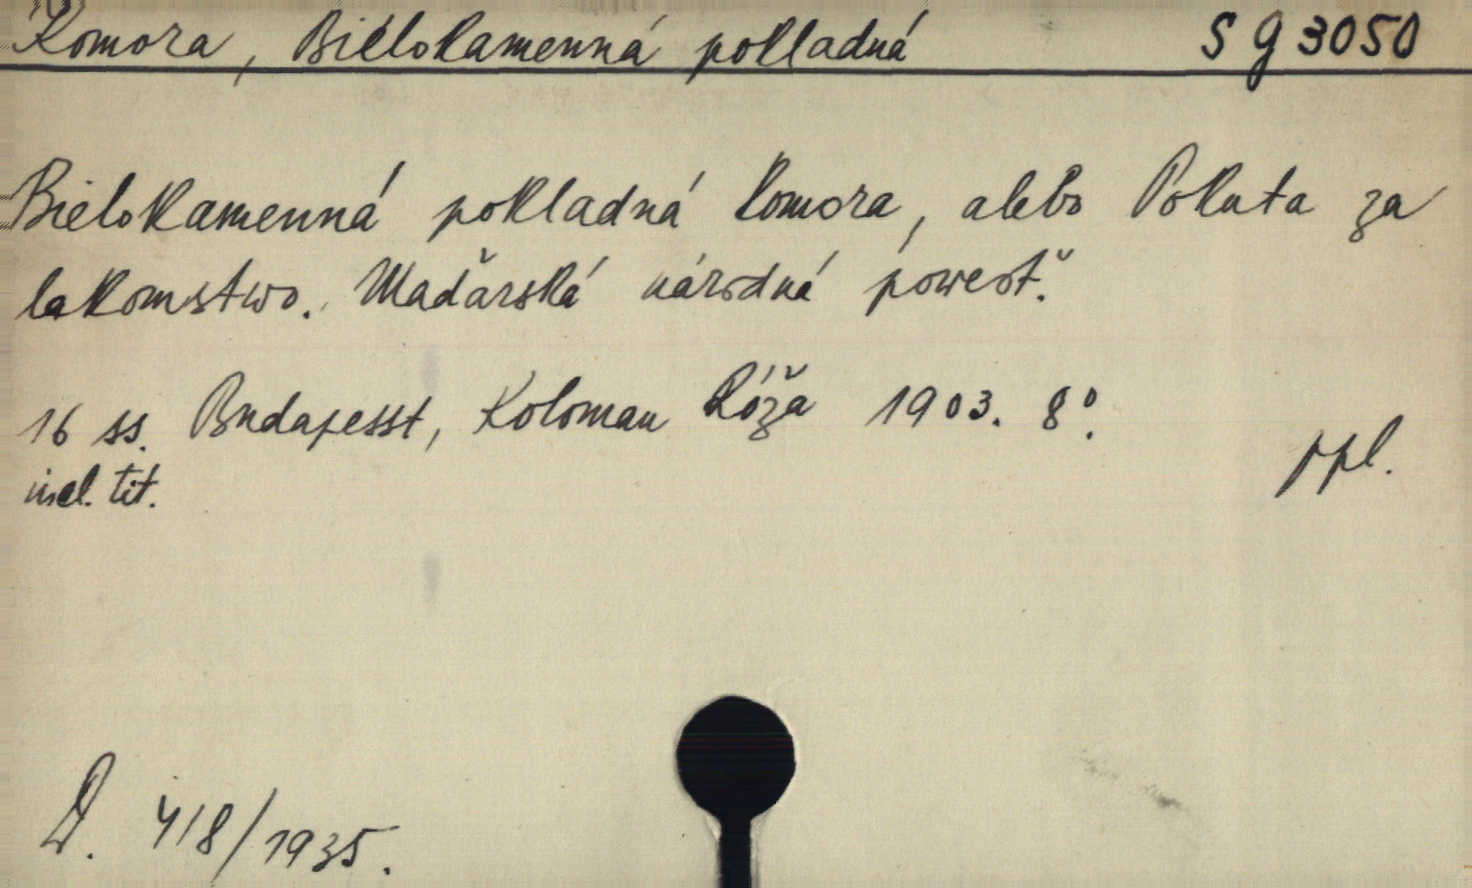 Komora, Bielokamenná pokladná SG 3050
Bielokamenná pokladná komora, alebo Pokuta za
lakomstwo. Maďarská národná powesť.
16 ss. Budapesst, Koloman Róža 1903. 8°.
incl. tit.
ppl.
D. 418/1935.